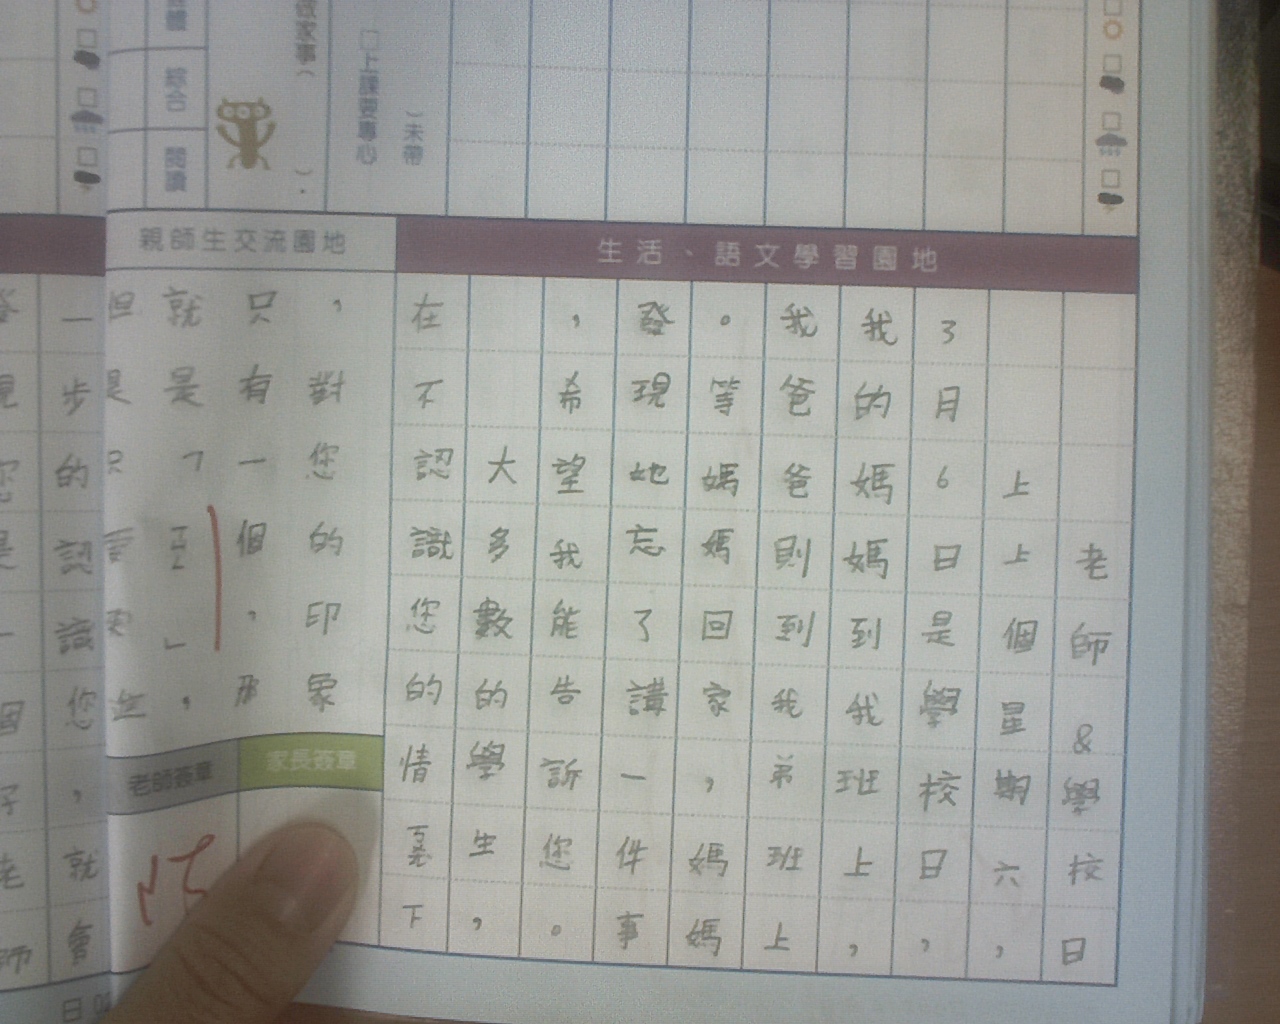 體
綜合
閱讀
做家事（
）。
□上課要專心
）未帶
親師生交流園地
生活、語文學習園地
老師&學校日
上上個星期六，
3月6日是學校日，
我的媽媽到我班上，
我爸爸則到我弟班上
。等媽媽回家，媽媽
發現她忘了講一件事
，希望我能告訴您。
大多數的學生，
在不認識您的情況下
，對您的印象
只有一個，那
就是「　」，
但是只要更進
一步的認識您，就會
發現您是一個好老師
家長簽章
老師簽章